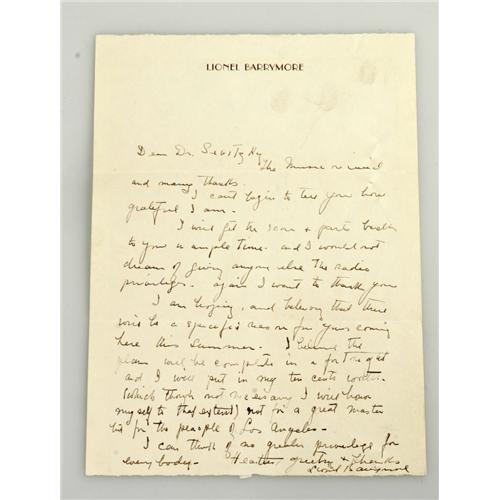 LIONEL BARRYMORE
Dear Dr.
The Music is
and many thanks.
I can't begin to tell you how
grateful I am.
I will get the score & parts back
to you in ample time. and I would not
dream of giving anyone else the radio
privileges. again I want to thank you
I am hoping, and believing that there
will be a specific reason for your coming
here this summer. I believe the
plan will be complete in a fortnight
and I will put in my ten cents worth.
(which though not necessary I will have
myself to that extent) not for a great master
but for the people of Los Angeles -
I can think of no greater privilege for
everybody - & thanks
Lionel Barrymore